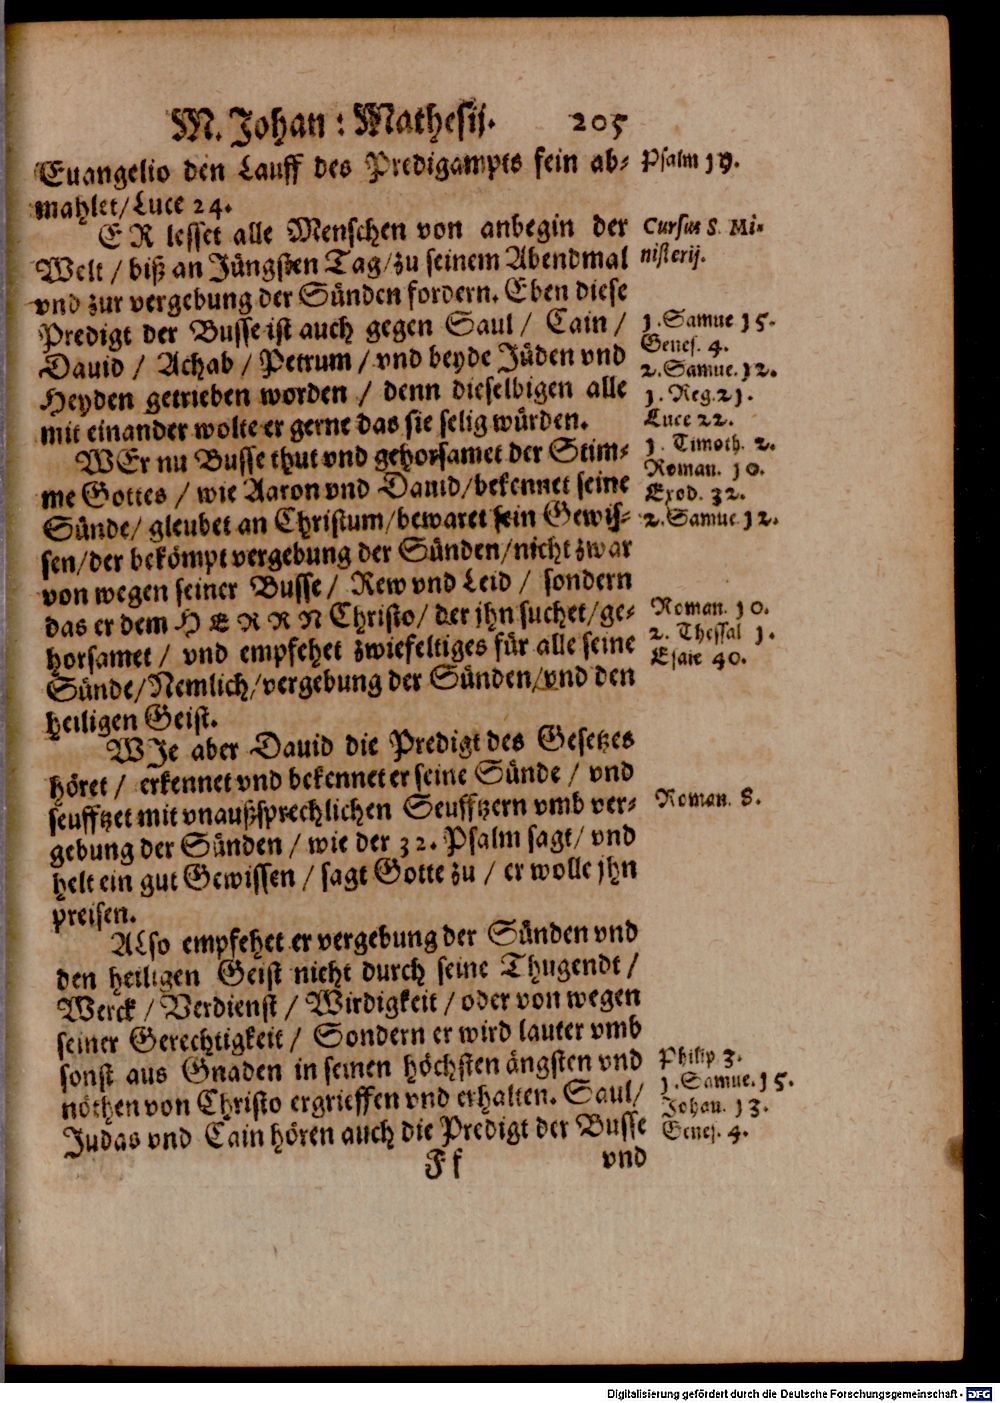 M. Johan: Mathesij. 205
Euangelio den Lauff des Predigampts fein ab- Psalm 19.
mahlet/Luce 24.
ER lesset alle Menschen von anbegin der Cursus S. Mi-
Welt / biß an Jüngsten Tag/zu seinem Abendmal nisterij.
vnd zur vergebung der Sünden fordern. Eben diese
Predigt der Busse ist auch gegen Saul / Cain / 1. Samue 15.
Genes. 4.
Dauid / Achab / Petrum / vnd beyde Jüden vnd 2. Samue. 12.
Heyden getrieben worden / denn dieselbigen alle 1. Reg. 21.
mit einander wolte er gerne das sie selig würden. Luce 22.
WEr nu Busse thut vnd gehorsamet der Stim- 1. Timoth. 2.
Roman. 10.
me Gottes / wie Aaron vnd Dauid/bekennet seine Exod. 32.
Sünde/ gleubet an Christum/bewaret sein Gewis- 2. Samue 12.
sen/der bekömpt vergebung der Sünden/nicht zwar
von wegen seiner Busse / Rew vnd Leid / sondern
das er dem HERRN Christo/ der jhn suchet/ge- Roman. 10.
2. Thessal 1.
horsamet / vnd empfehet zwiefeltiges für alle seine Esaie 40.
Sünde/Nemlich/vergebung der Sünden/vnd den
heiligen Geist.
WJe aber Dauid die Predigt des Gesetzes
höret / erkennet vnd bekennet er seine Sünde / vnd
seufftzet mit vnaußsprechlichen Seufftzern vmb ver- Roman. 8.
gebung der Sünden / wie der 32. Psalm sagt/ vnd
helt ein gut Gewissen / sagt Gotte zu / er wolle jhn
preisen.
ALso empfehet er vergebung der Sünden vnd
den heiligen Geist nicht durch seine Thugendt /
Werck / Verdienst / Wirdigkeit / oder von wegen
seiner Gerechtigkeit / Sondern er wird lauter vmb
sonst aus Gnaden in seinen höchsten ängsten vnd Philip 3.
nöthen von Christo ergrieffen vnd erhalten. Saul/ 1. Samue. 15.
Johan. 13.
Judas vnd Cain hören auch die Predigt der Busse Genes. 4.
Ff vnd
Digitalisierung gefördert durch die Deutsche Forschungsgemeinschaft - DFG